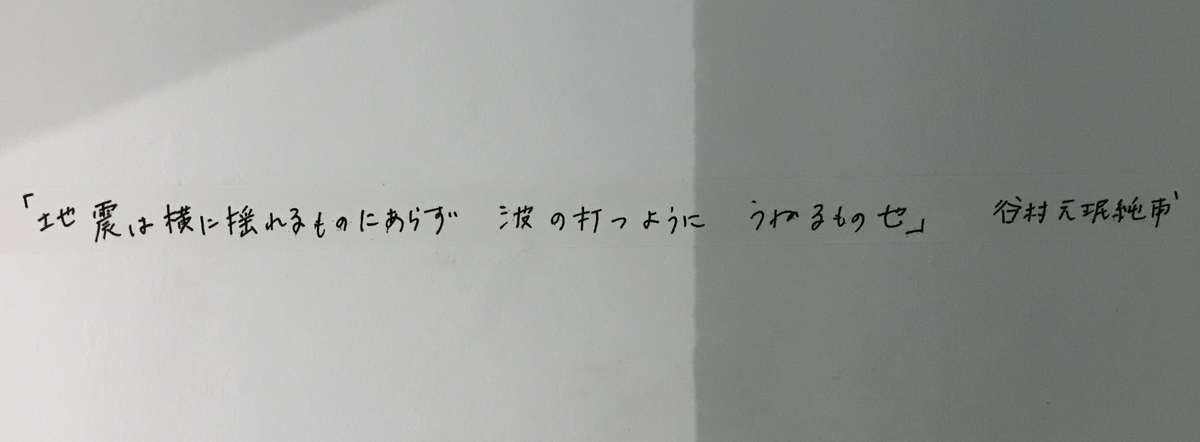 「地震は横に揺れるものにあらず 波の打つように うねるものせ」 谷村元珉純甫